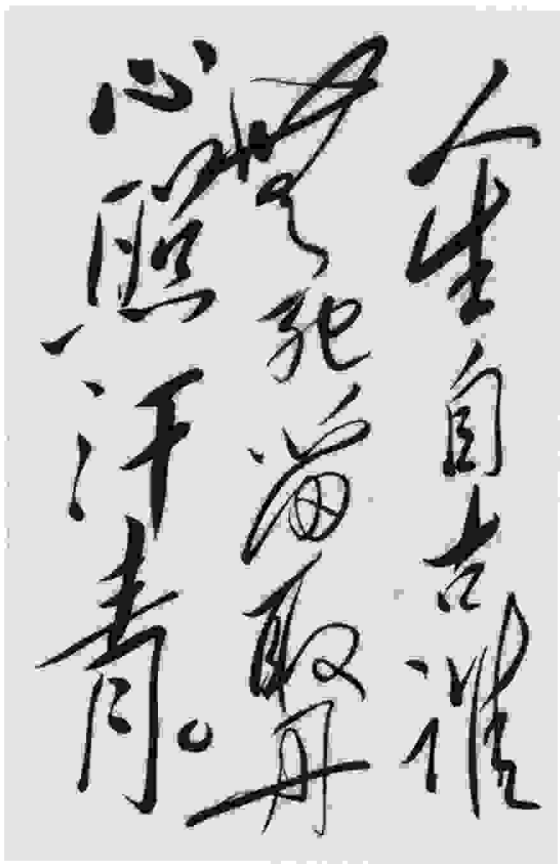 人生自古谁
無死留取丹
心照汗青。